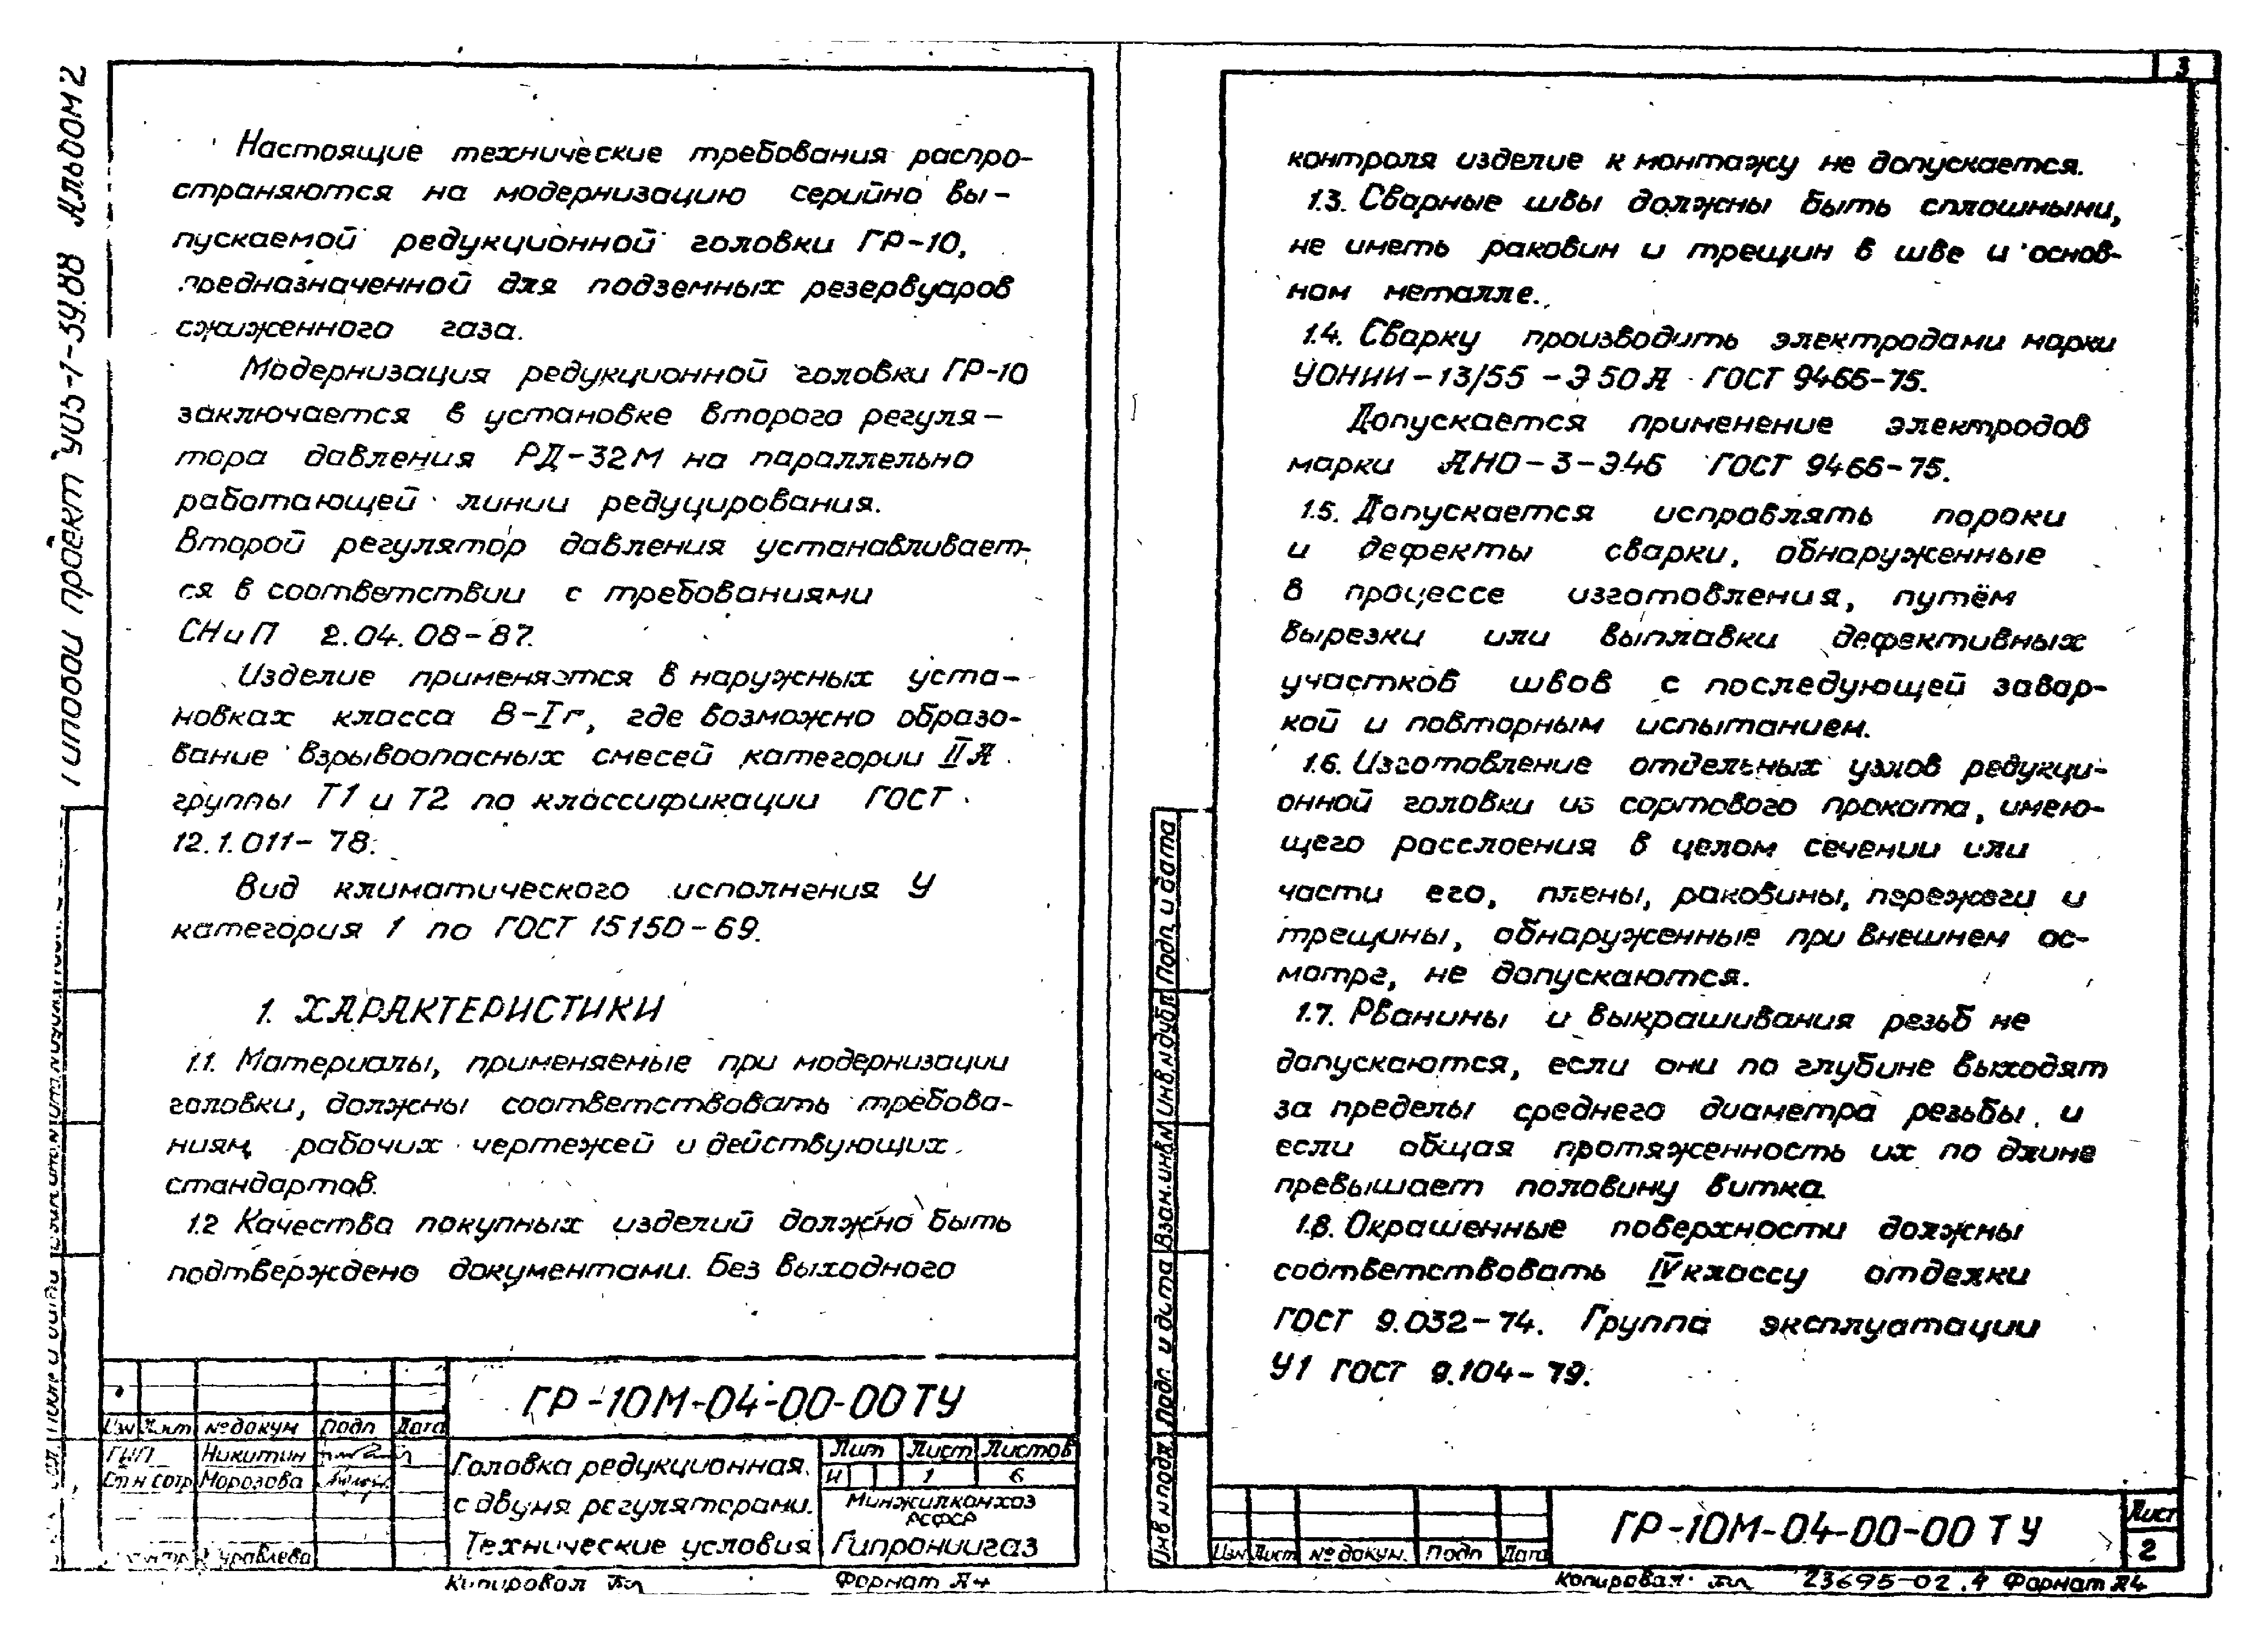 Альбом 2
Типовой проект У05-1-39.88
Настоящие технические требования распро-
страняются на модернизацию серийно вы-
пускаемой редукционной головки ГР-10,
предназначенной для подземных резервуаров
сжиженного газа.
Модернизация редукционной головки ГР-10
заключается в установке второго регуля-
тора давления РД-32М на параллельно
работающей линии редуцирования.
Второй регулятор давления устанавливает-
ся в соответствии с требованиями
СНиП 2.04.08-87.
Изделие применяется в наружных уста-
новках класса В-Iг, где возможно образо-
вание взрывоопасных смесей категории IIА
группы Т1 и Т2 по классификации ГОСТ
12.1.011-78.
Вид климатического исполнения У
категория 1 по ГОСТ 15150-69.
1. ХАРАКТЕРИСТИКИ
1.1. Материалы, применяемые при модернизации
головки, должны соответствовать требова-
ниям рабочих чертежей и действующих
стандартов.
1.2 Качества покупных изделий должно быть
подтверждено документами. Без выходного
ГР-10М-04-00-00 ТУ
Изм Лист № докум Подп Дата
ГИП Никитин
Ст н сотр Морозова
Журавлева
Головка редукционная
с двумя регуляторами.
Технические условия
Лит Лист Листов
И 1 6
Минжилкомхоз
РСФСР
Гипрониигаз
Копировал Формат А4
3
контроля изделие к монтажу не допускается.
1.3. Сварные швы должны быть сплошными,
не иметь раковин и трещин в шве и основ-
ном металле.
1.4. Сварку производить электродами марки
УОНИИ-13/55-Э50А ГОСТ 9466-75.
Допускается применение электродов
марки АНО-3-Э46 ГОСТ 9466-75.
1.5. Допускается исправлять пороки
и дефекты сварки, обнаруженные
в процессе изготовления, путём
вырезки или выплавки дефективных
участков швов с последующей завар-
кой и повторным испытанием.
1.6. Изготовление отдельных узлов редукци-
онной головки из сортового проката, имею-
щего расслоения в целом сечении или
части его, плены, раковины, пережоги и
трещины, обнаруженные при внешнем ос-
мотре, не допускаются.
1.7. Рванины и выкрашивания резьб не
допускаются, если они по глубине выходят
за пределы среднего диаметра резьбы и
если общая протяженность их по длине
превышает половину витка.
1.8. Окрашенные поверхности должны
соответствовать IV классу отделки
ГОСТ 9.032-74. Группа эксплуатации
У1 ГОСТ 9.104-79.
Инв.№подл. Подп. и дата Взам.инв.№ Инв.№дубл. Подп. и дата
Изм Лист № докум. Подп Дата
ГР-10М-04-00-00 ТУ
Лист
2
Копировал 23695-02 .4 Формат А4